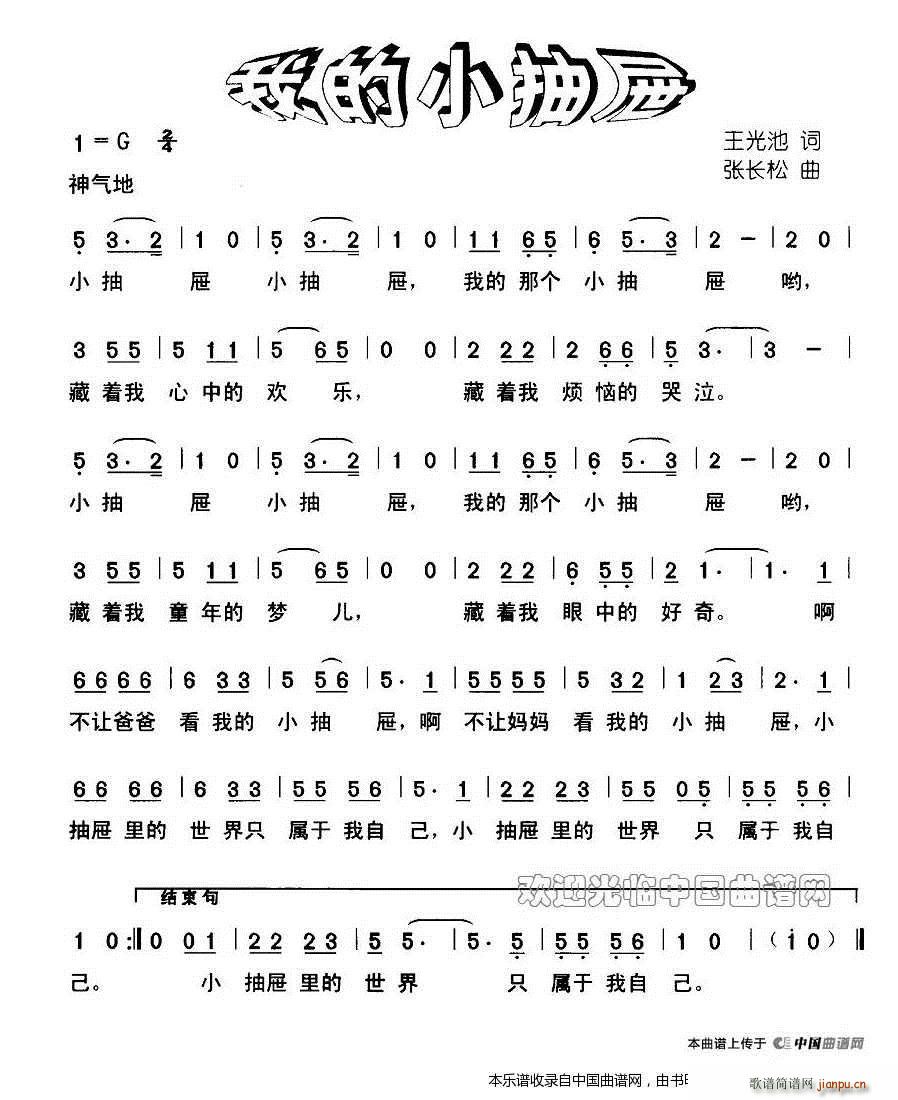 我的小抽屉
1=G 2/4
王光池 词
神气地
张长松 曲
5 3·2 | 1 0 | 5 3·2 | 1 0 | 11 65 | 6 5·3 | 2 － | 20 |
小抽 屉 小抽 屉， 我的那个 小抽 屉 哟，
3 55 | 5 11 | 5 65 | 0 0 | 2 22 | 2 66 | 5 3· | 3 － |
藏着我 心中的 欢 乐， 藏着我 烦恼的 哭泣。
5 3·2 | 1 0 | 5 3·2 | 1 0 | 11 65 | 6 5·3 | 2 － | 20 |
小抽 屉 小抽 屉， 我的那个 小抽 屉 哟，
3 55 | 5 11 | 5 65 | 0 0 | 2 22 | 6 55 | 2 1· | 1· 1 |
藏着我 童年的 梦 儿， 藏着我 眼中的 好奇。 啊
6666 | 6 33 | 5 56 | 5· 1 | 5555 | 5 32 | 1 23 | 2· 1 |
不让爸爸 看我的 小抽 屉，啊 不让妈妈 看我的 小抽 屉，小
66 66 | 6 33 | 55 56 | 5· 1 | 22 23 | 5 33 | 55 05 | 55 56 |
抽屉里的 世界只 属于我自 己，小 抽屉里的 世界 只 属于我自
结束句
欢迎光临中国曲谱网
1 0 :‖ 0 01 | 22 23 | 5 5· | 5· 5 | 55 56 | 1 0 | (i0) ‖
己。 小 抽屉里的 世界 只 属于我自 己。
本曲谱上传于 中国曲谱网
本乐谱收录自中国曲谱网，由书
歌谱简谱网
jianpu.cn